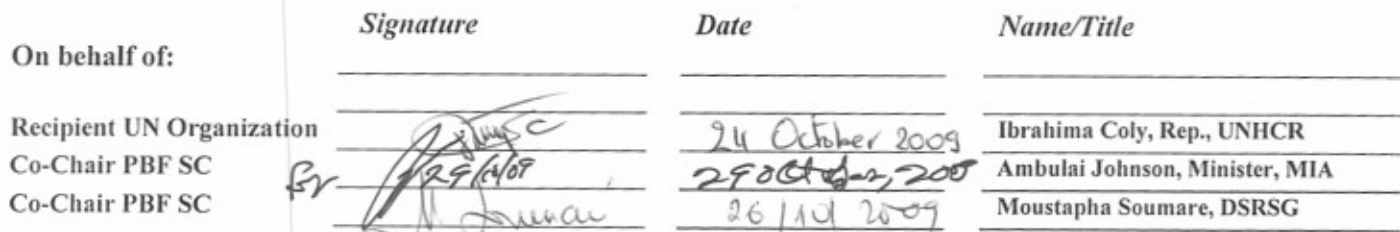 Signature Date Name/Title
On behalf of:
Recipient UN Organization 24 October 2009 Ibrahima Coly, Rep., UNHCR
Co-Chair PBF SC for 29/10/09 29 October, 200 Ambulai Johnson, Minister, MIA
Co-Chair PBF SC 26/10/2009 Moustapha Soumare, DSRSG